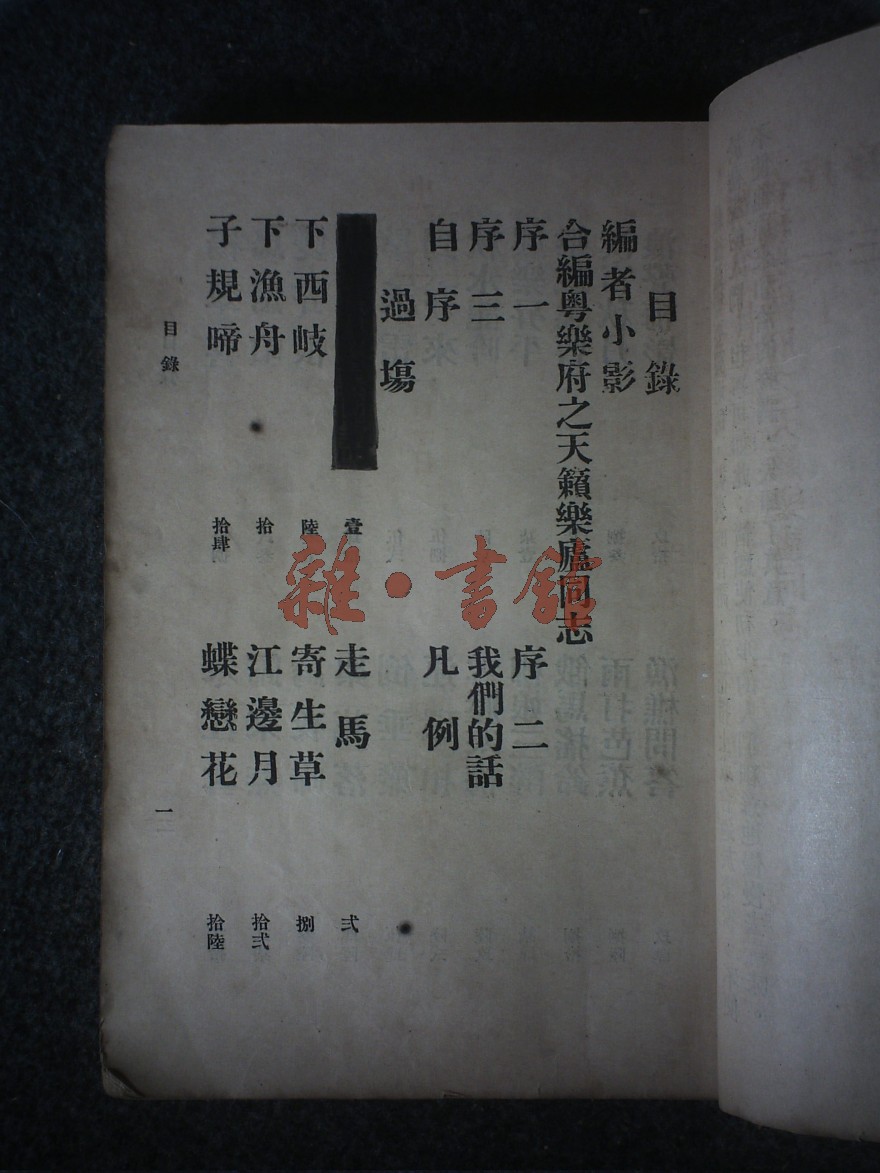 目錄
編者小影
合編粵樂府之天籟樂廬同志
序一　序二
序三　我們的話
自序　凡例
過場
壹　走馬　弍
下西岐　陸　寄生草　捌
下漁舟　拾　江邊月　拾弍
子規啼　拾肆　蝶戀花　拾陸
目錄　一
雜·書館